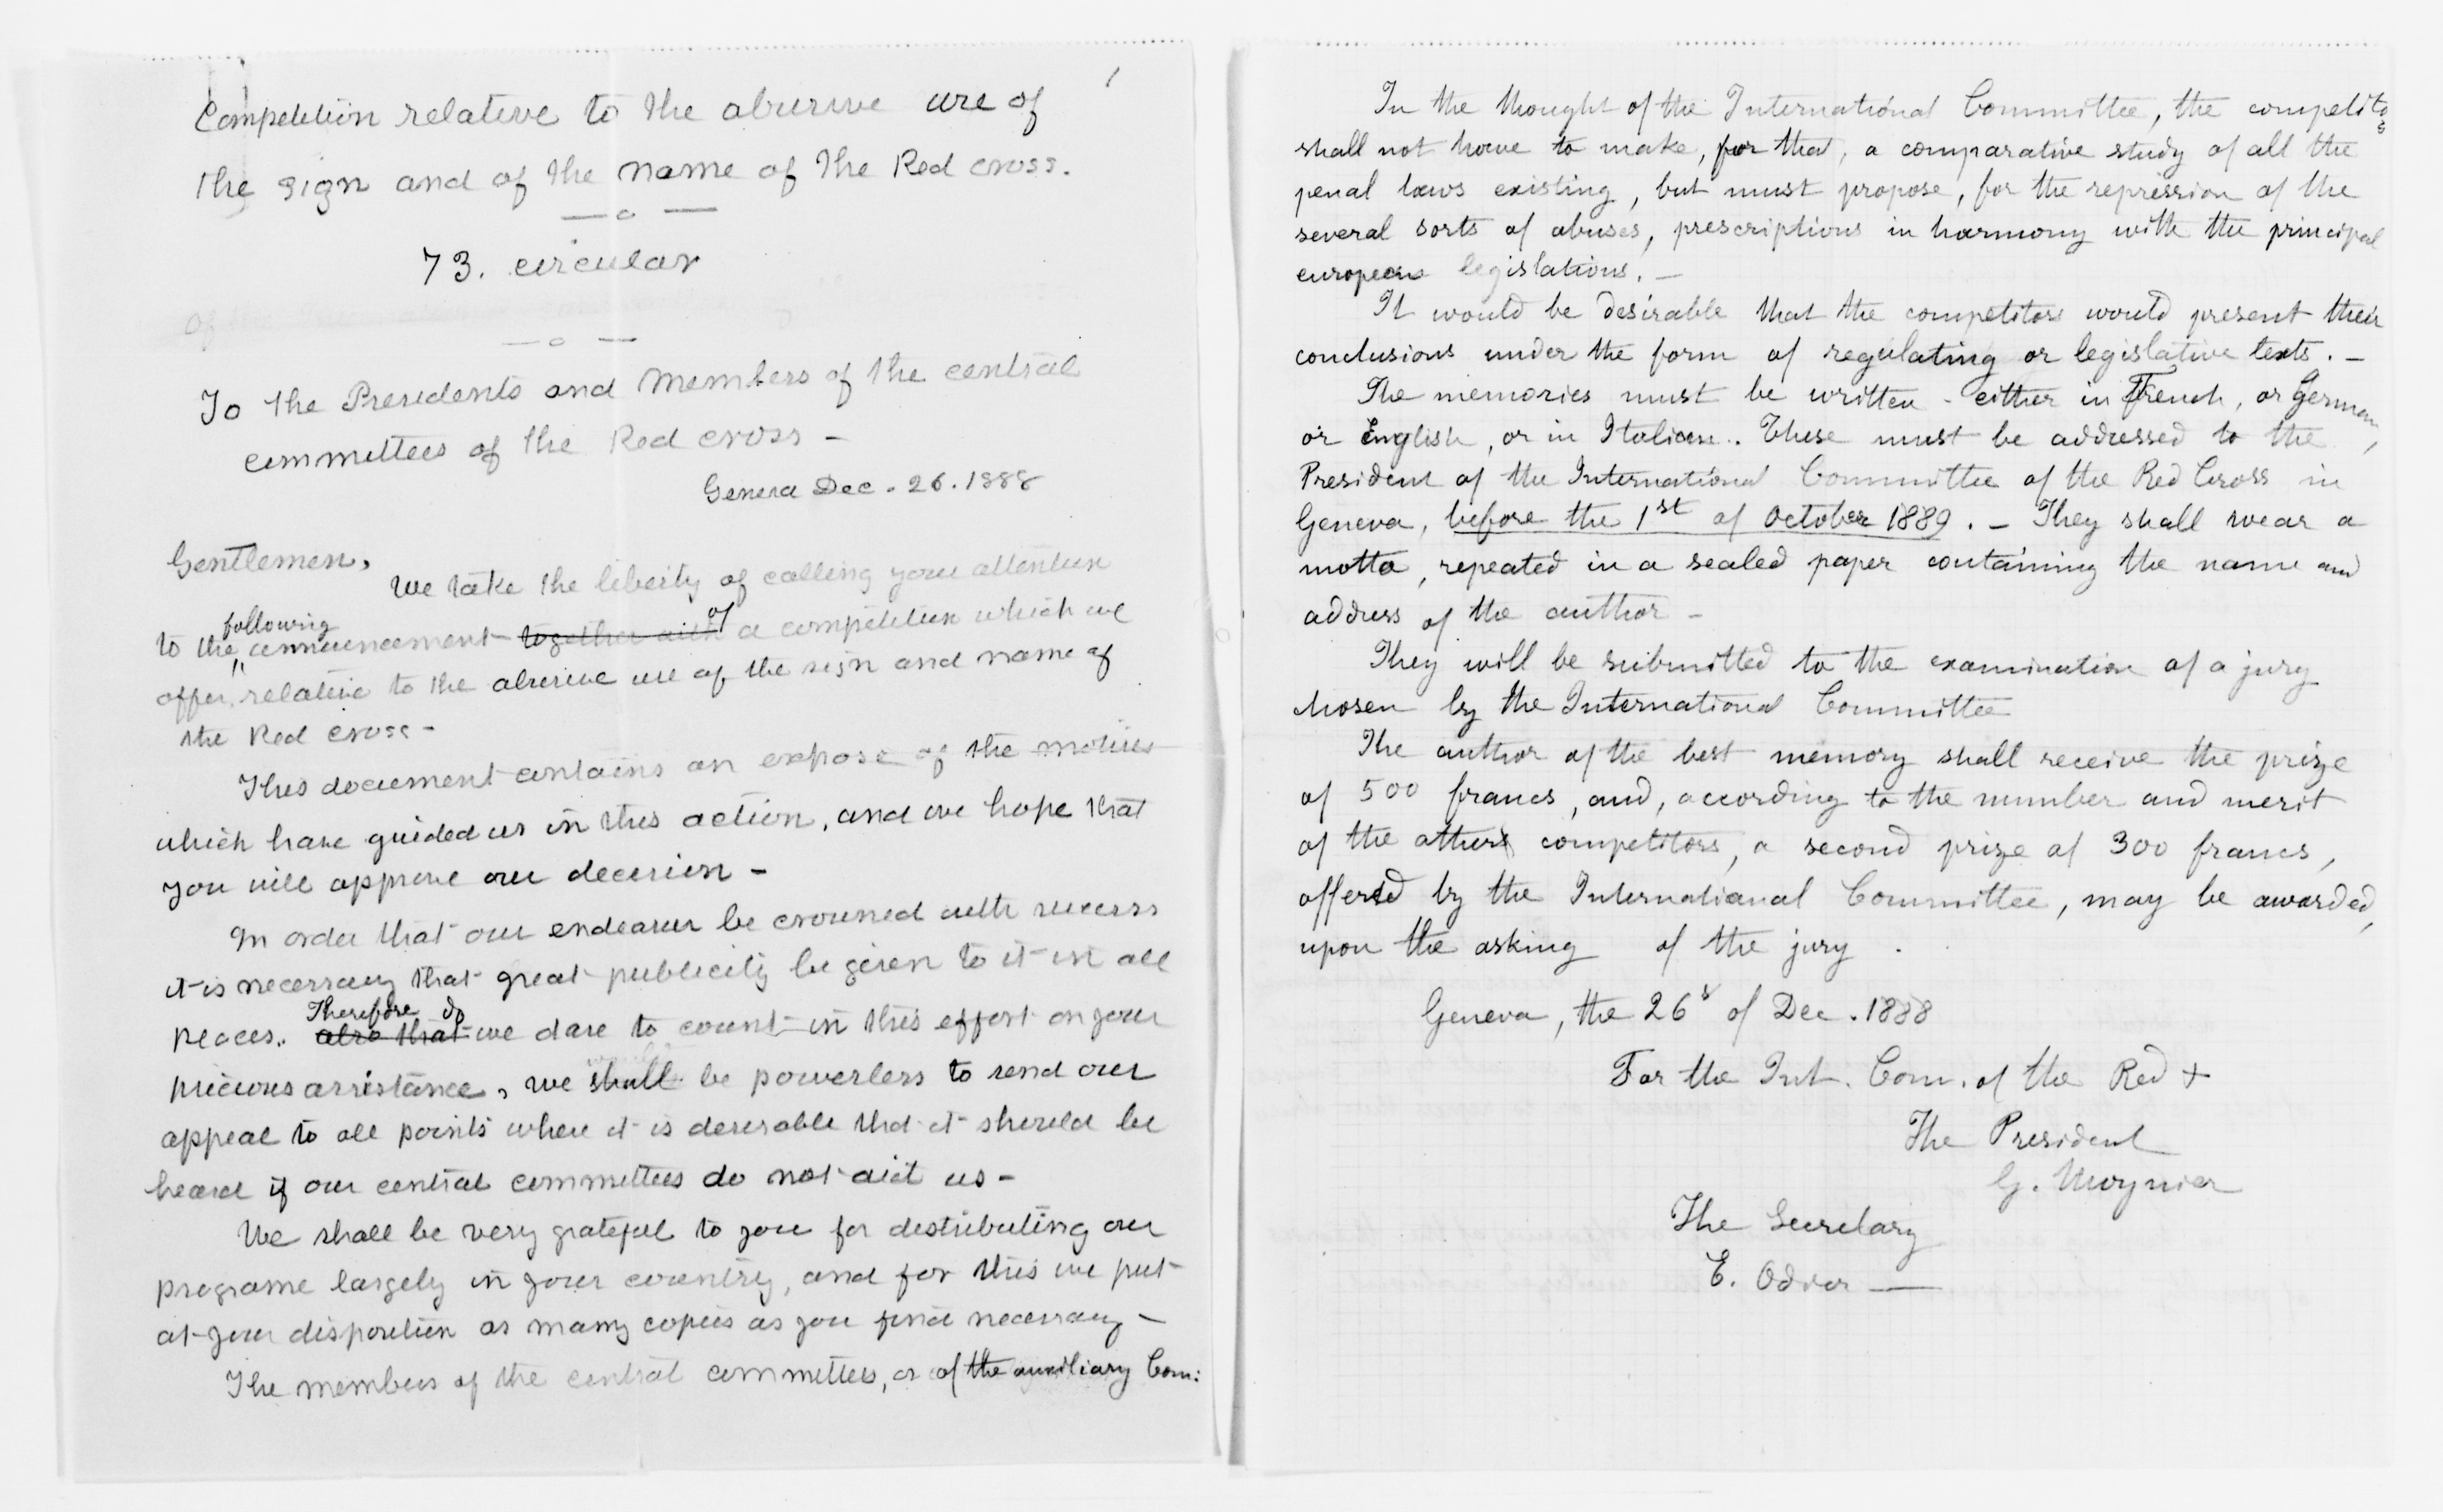 1
Competition relative to the abusive use of
the sign and of the name of the Red cross.
—o—
73. circular
of the International
—o—
To the Presidents and Members of the central
committees of the Red cross —
Geneva Dec. 26. 1888
Gentlemen,
We take the liberty of calling your attention
following of
to the announcement together with a competition which we
offer, relative to the abusive use of the sign and name of
the Red cross -
This document contains an expose of the motives
which have guided us in this action, and we hope that
you will approve our decision -
In order that our endeavour be crowned with success
it is necessary that great publicity be given to it in all
Therefore do
places. also that we dare to count in this effort on your
precious assistance, we shall be powerless to send our
appeal to all points where it is desirable that it should be
heard if our central committees do not aid us -
We shall be very grateful to you for distributing our
programe largely in your country, and for this we put
at your disposition as many copies as you find necessary —
The members of the central committees, or of the auxiliary Com:
In the thought of the International Committee, the competitos
shall not have to make, for that, a comparative study of all the
penal laws existing, but must propose, for the repression of the
several sorts of abuses, prescriptions in harmony with the principal
european legislations. —
It would be desirable that the competitors would present their
conclusions under the form of regulating or legislative texts. —
The memories must be written - either in French, or German,
or English, or in Italian. These must be addressed to the
President of the International Committee of the Red Cross in
Geneva, before the 1st of October 1889. — They shall wear a
motto, repeated in a sealed paper containing the name and
address of the author —
They will be submitted to the examination of a jury
chosen by the International Committee
The author of the best memory shall receive the prize
of 500 francs, and, according to the number and merit
of the others competitors, a second prize of 300 francs,
offered by the International Committee, may be awarded,
upon the asking of the jury.
Geneva, the 26 of Dec. 1888
For the Int. Com. of the Red +
The President
G. Moynier
The Secretary
E. Odier —